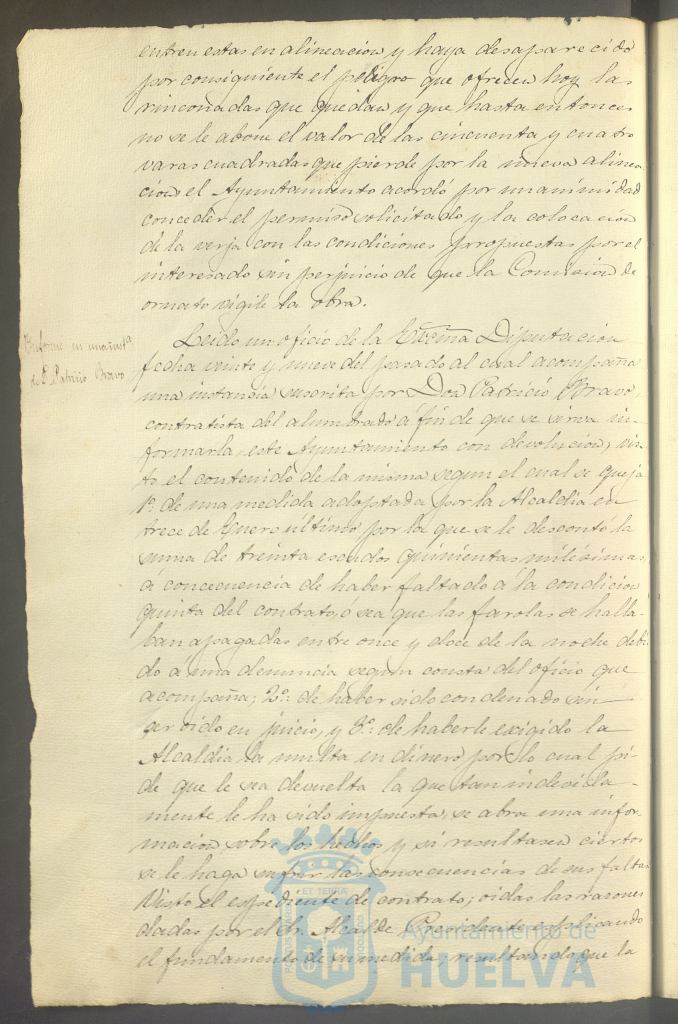 entren estas en alineacion y haya desaparecido
por consiguiente el peligro que ofrecen hoy las
rinconadas que quedan y que hasta entonces
no se le abone el valor de las cincuenta y cuatro
varas cuadradas que pierde por la nueva alinea-
cion, el Ayuntamiento acordó por unanimidad
conceder el permiso solicitado y la colocacion
de la verja con las condiciones propuestas por el
interesado sin perjuicio de que la Comision de
ornato vigile la obra.
Informe en una inst.a
de D. Patricio Bravo
Leido un oficio de la Excma Diputacion
fecha veinte y nueve del pasado al cual acompaña
una instancia suscrita por Don Patricio Bravo,
contratista del alumbrado á fin de que se sirva in-
formarla este Ayuntamiento con devolucion, vis-
to el contenido de la misma segun el cual se queja
1º. de una medida adoptada por la Alcaldia en
trece de Enero último por la que se le descontó la
suma de treinta escudos quinientas milésimas
á concecuencia de haber faltado á la condicion
quinta del contrato, ó sea que las farolas se halla-
ban apagadas entre once y doce de la noche debi-
do á una denuncia segun consta del oficio que
acompaña; 2º. de haber sido condenado sin
ser oido en juicio, y 3º. de haberle exigido la
Alcaldia la multa en dinero por lo cual pi-
de que le sea devuelta la que tan indevida-
mente le ha sido impuesta, se abra una infor-
macion sobre los hechos y si resultasen ciertos
se le haga sufrir las consecuencias de sus faltas
Visto el espediente de contrato; oidas las razones
dadas por el Sr. Alcalde Presidente esplicando
el fundamento de su medida; resultando que la
Ayuntamiento de
HUELVA